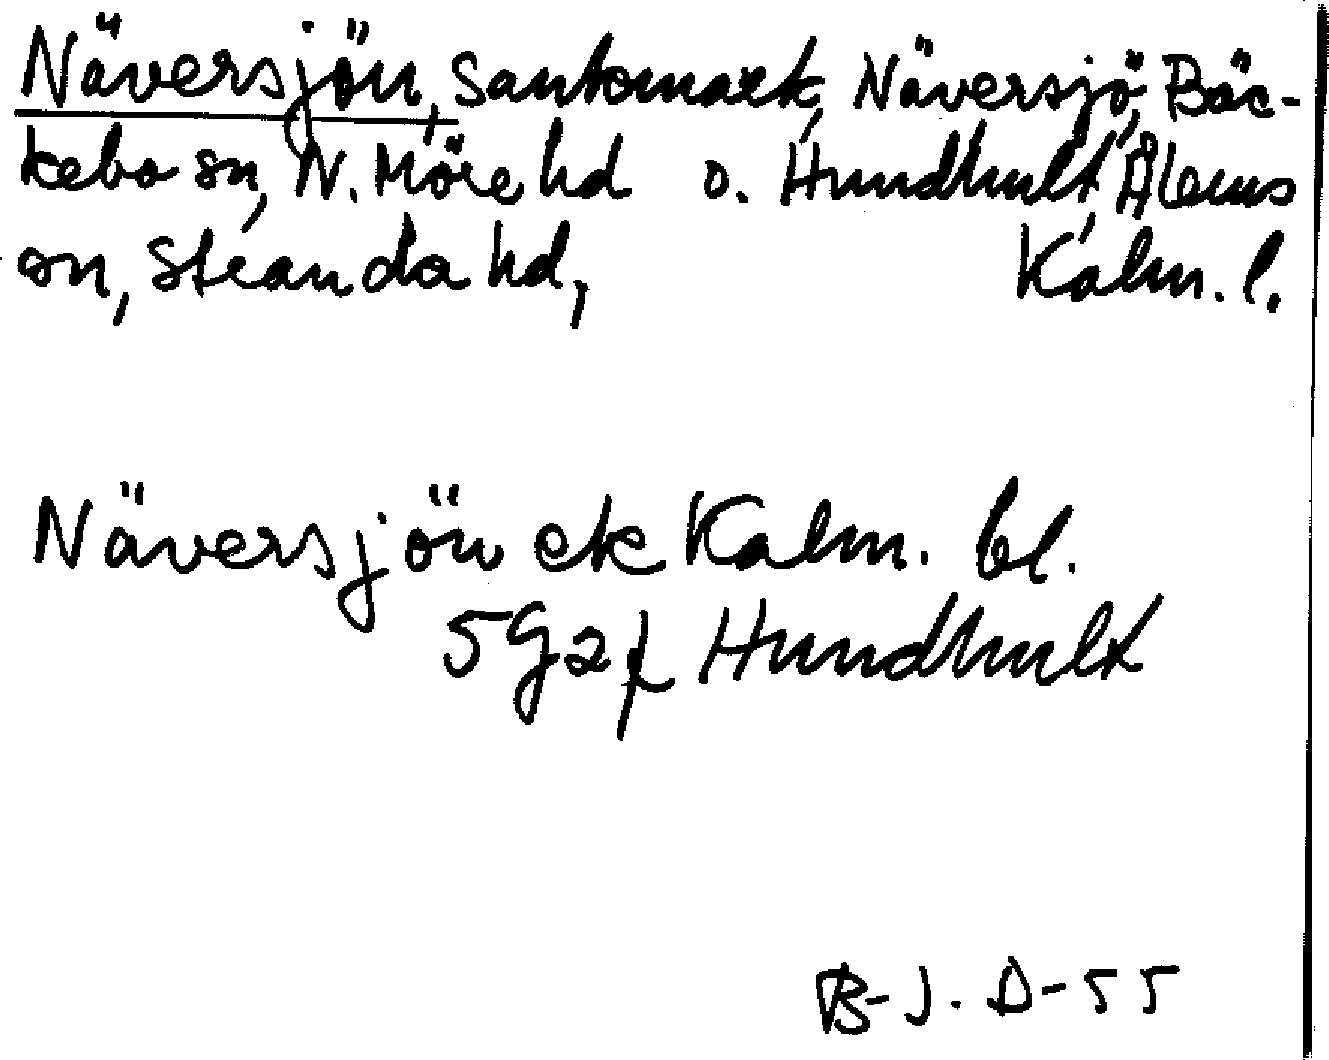 Näversjön, Santomark, Näversjö, Bäc-
kebo sn, N. Möre hd o. Hundhult, Ålems
sn, Stranda hd, Kalm. l.
Näversjön ek Kalm. bl.
5G2f Hundhult
B-J. D-55